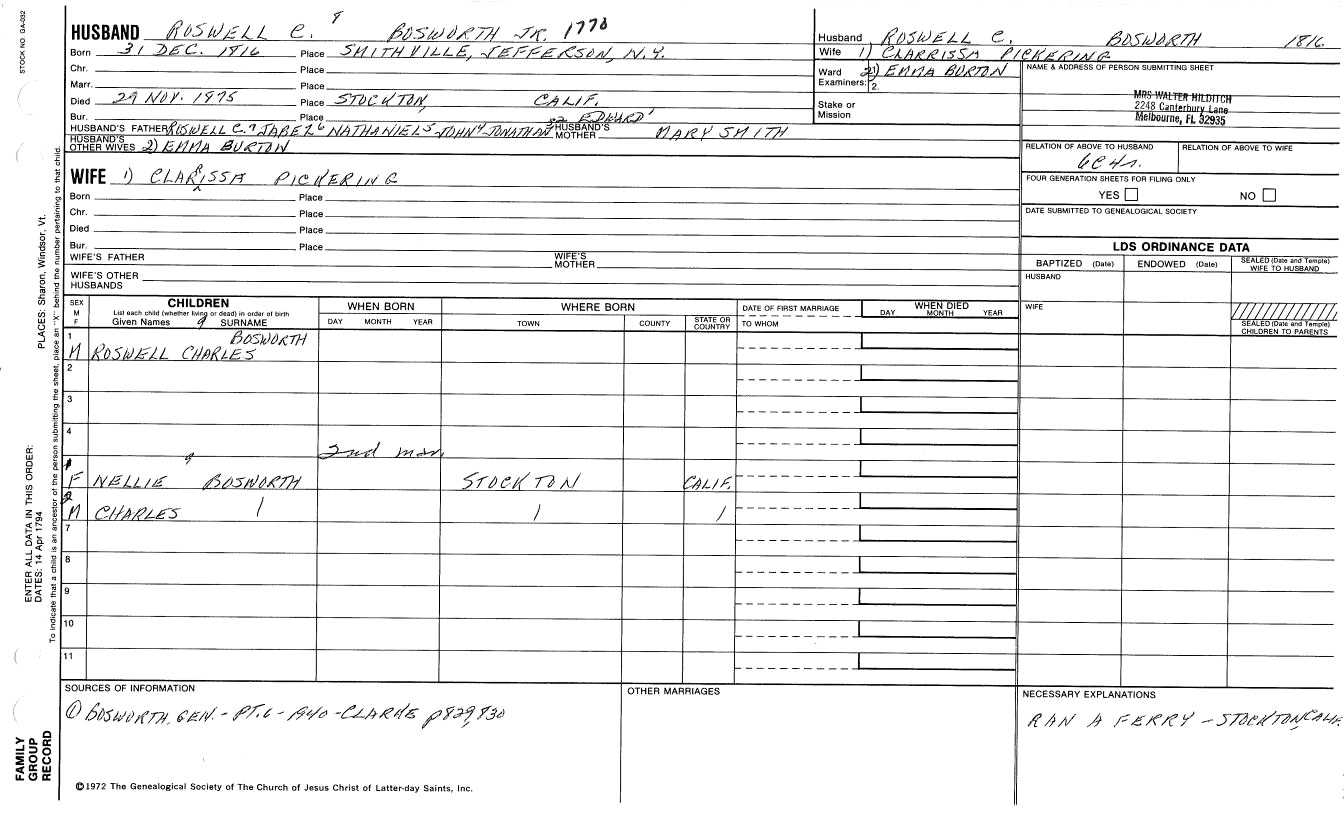 STOCK NO GA-032
HUSBAND ROSWELL C. 8 BOSWORTH JR. 1778
Born 31 DEC. 1816 Place SMITHVILLE, JEFFERSON, N.Y.
Chr. Place
Marr. Place
Died 29 NOV. 1975 Place STOCKTON, CALIF.
Bur. Place
HUSBAND'S FATHER ROSWELL C.7 JABEZ6 NATHANIEL5 JOHN4 JONATHAN32 EDWARD1 HUSBAND'S MOTHER MARY SMITH
HUSBAND'S OTHER WIVES 2) EMMA BURTON
WIFE 1) CLARRISSA PICKERING
Born Place
Chr. Place
Died Place
Bur. Place
WIFE'S FATHER WIFE'S MOTHER
WIFE'S OTHER HUSBANDS
Husband ROSWELL C. BOSWORTH 1816
Wife 1) CLARRISSA PICKERING
Ward 2) EMMA BURTON
Examiners: 2.
Stake or
Mission
NAME & ADDRESS OF PERSON SUBMITTING SHEET
MRS WALTER HILDITCH
2248 Canterbury Lane
Melbourne, FL 32935
RELATION OF ABOVE TO HUSBAND RELATION OF ABOVE TO WIFE
6C4r.
FOUR GENERATION SHEETS FOR FILING ONLY
YES NO
DATE SUBMITTED TO GENEALOGICAL SOCIETY
LDS ORDINANCE DATA
BAPTIZED (Date) ENDOWED (Date) SEALED (Date and Temple) WIFE TO HUSBAND
HUSBAND
WIFE
SEALED (Date and Temple) CHILDREN TO PARENTS
SEX M F CHILDREN WHEN BORN WHERE BORN DATE OF FIRST MARRIAGE WHEN DIED
List each child (whether living or dead) in order of birth
Given Names 9 SURNAME DAY MONTH YEAR TOWN COUNTY STATE OR COUNTRY TO WHOM DAY MONTH YEAR
1 BOSWORTH
M ROSWELL CHARLES
2
3
4
2nd mar.
1 9
F NELLIE BOSWORTH STOCKTON CALIF.
2
M CHARLES
7
8
9
10
11
SOURCES OF INFORMATION
① BOSWORTH. GEN. - PT.6 - 1940 - CLARKE p829,830
OTHER MARRIAGES
NECESSARY EXPLANATIONS
RAN A FERRY - STOCKTON, CALIF.
©1972 The Genealogical Society of The Church of Jesus Christ of Latter-day Saints, Inc.
FAMILY
GROUP
RECORD
ENTER ALL DATA IN THIS ORDER:
DATES: 14 Apr 1794
PLACES: Sharon, Windsor, Vt.
To indicate that a child is an ancestor of the person submitting the sheet, place an "X" behind the number pertaining to that child.